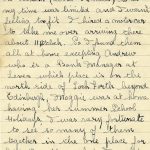 ing time was limited and I wasn't
feeling so fit I hired a motorcar
to take me over arriving there
about 11 o'clock. So I found them
all at home excepting Andrew
who is a Bank Manager at
Leven which place is on the
north side of Forth Forth beyond
Edinburgh. Maggie was at home
having her Summer School
Holidays. I was very fortunate
to see so many of them
together in the one place for